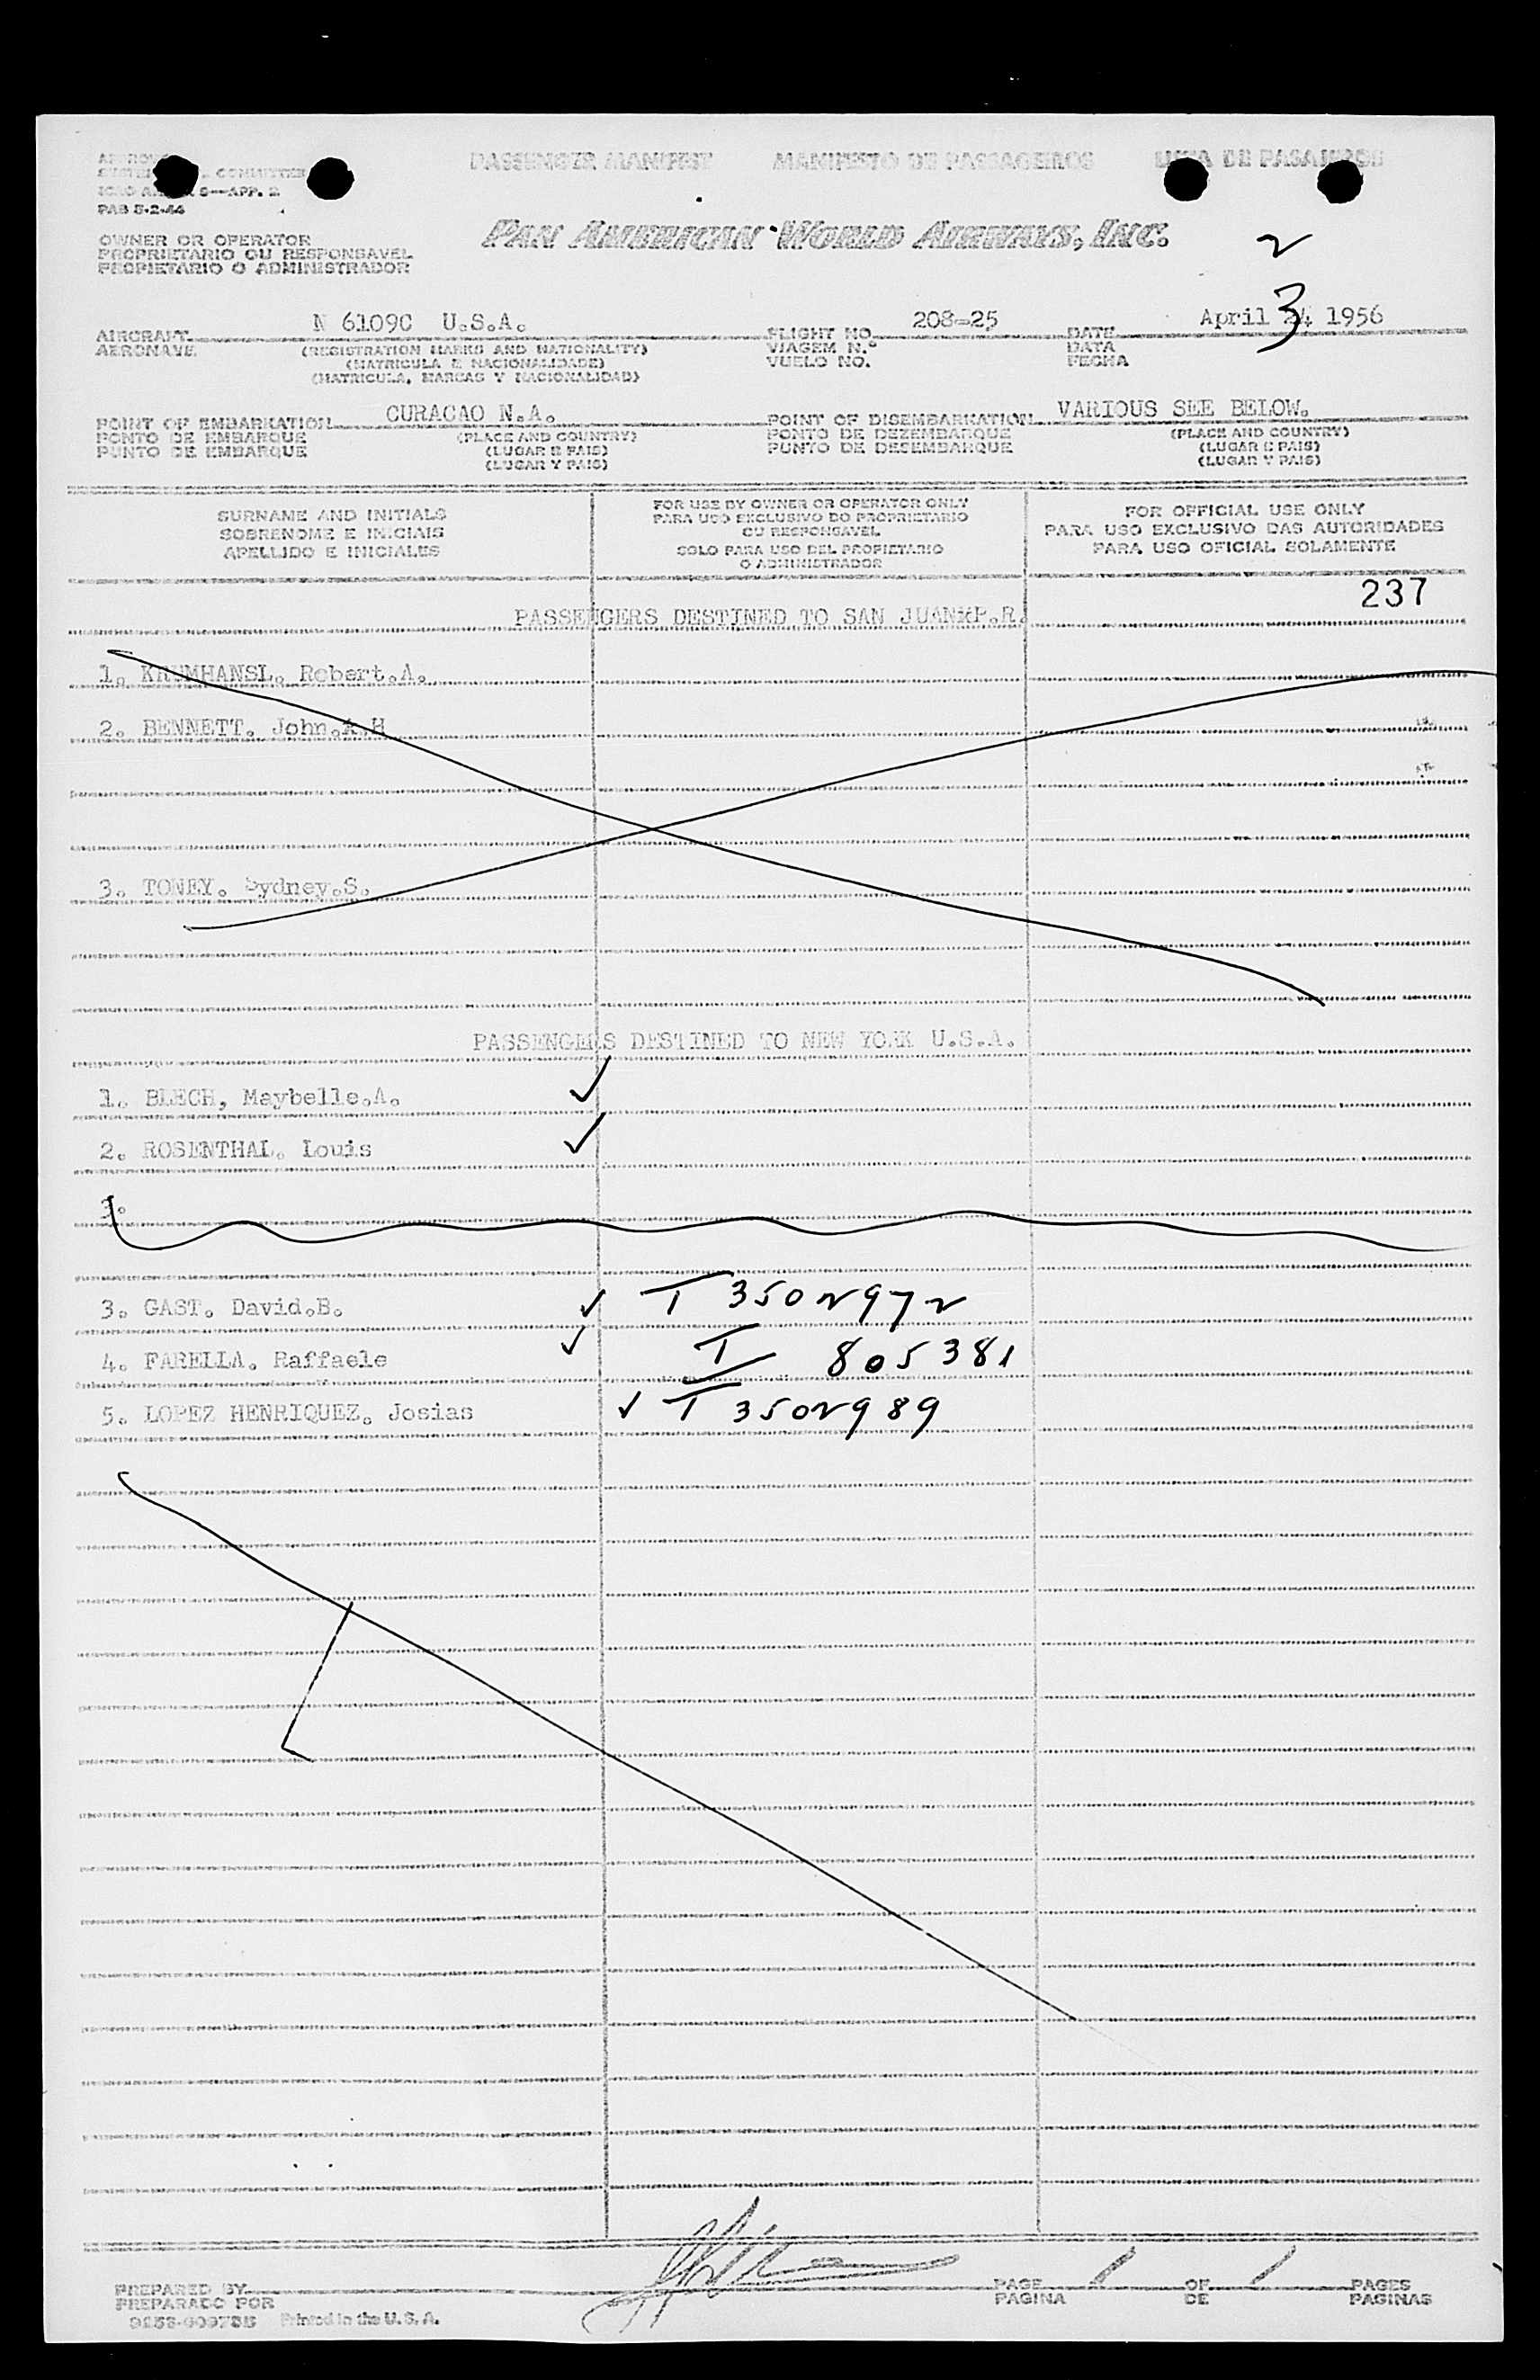 PASSENGER MANIFEST MANIFESTO DE PASSAGEIROS LISTA DE PASAJEROS
COMMITTEE
9—APP. 2
PAB 5-2-44
PAN AMERICAN WORLD AIRWAYS, INC.
2
OWNER OR OPERATOR
PROPRIETARIO OU RESPONSAVEL
PROPIETARIO O ADMINISTRADOR
AIRCRAFT N 6109C U.S.A. FLIGHT NO. 208-25 DATE April 3 24 1956
AERONAVE (REGISTRATION MARKS AND NATIONALITY) VIAGEM N.° DATA
(MATRICULA E NACIONALIDADE) VUELO NO. FECHA
(MATRICULA, MARCAS Y NACIONALIDAD)
POINT OF EMBARKATION CURACAO N.A. POINT OF DISEMBARKATION VARIOUS SEE BELOW.
PONTO DE EMBARQUE (PLACE AND COUNTRY) PONTO DE DEZEMBARQUE (PLACE AND COUNTRY)
PUNTO DE EMBARQUE (LUGAR E PAIS) PUNTO DE DESEMBARQUE (LUGAR E PAIS)
(LUGAR Y PAIS) (LUGAR Y PAIS)
SURNAME AND INITIALS
SOBRENOME E INICIAIS
APELLIDO E INICIALES
FOR USE BY OWNER OR OPERATOR ONLY
PARA USO EXCLUSIVO DO PROPRIETARIO
OU RESPONSAVEL
SOLO PARA USO DEL PROPIETARIO
O ADMINISTRADOR
FOR OFFICIAL USE ONLY
PARA USO EXCLUSIVO DAS AUTORIDADES
PARA USO OFICIAL SOLAMENTE
237
PASSENGERS DESTINED TO SAN JUAN P.R.
1. KRUMHANSL. Robert.A.
2. BENNETT. John.A.H
3. TONEY. Sydney.S.
PASSENGERS DESTINED TO NEW YORK U.S.A.
1. BLECH, Maybelle.A. ✓
2. ROSENTHAL. Louis ✓
3.
3. GAST. David.B. ✓ T 3502972
4. FARELLA. Raffaele ✓ T 805381
5. LOPEZ HENRIQUEZ. Josias ✓ T 3502989
PREPARED BY PAGE 1 OF 1 PAGES
PREPARADO POR PAGINA DE PAGINAS
Printed in the U.S.A.